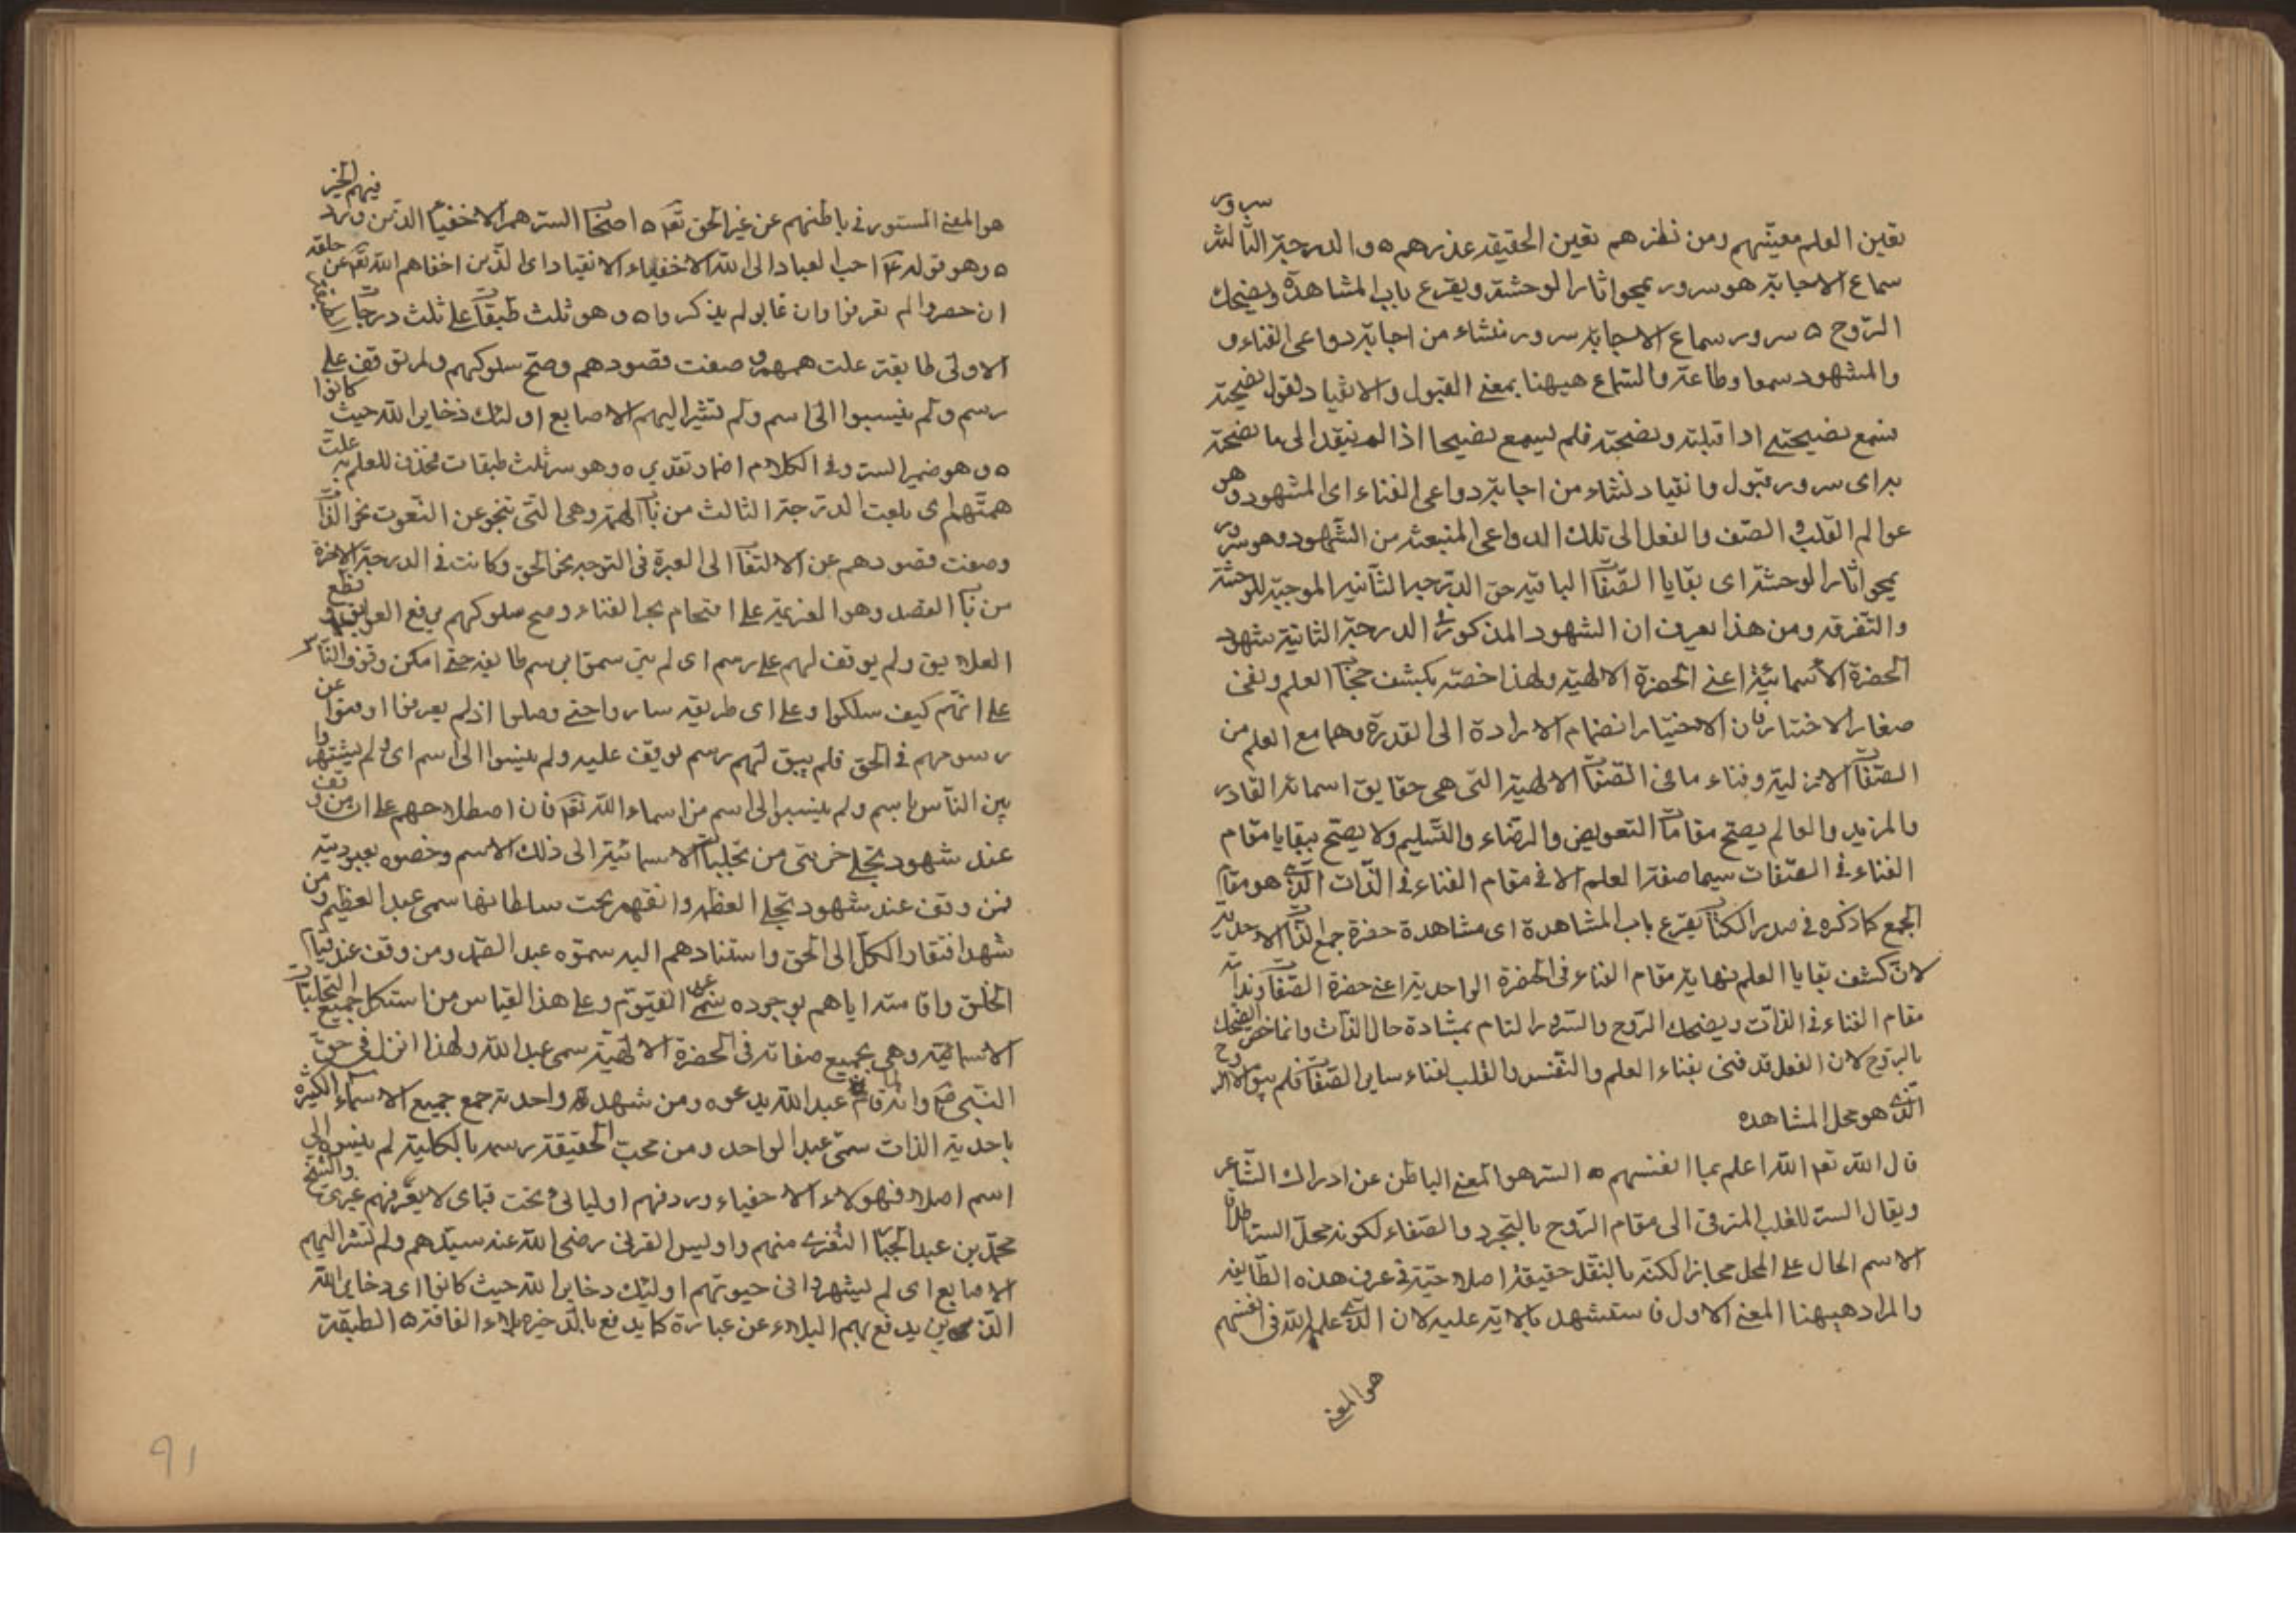 سرور
تعين العلم معيّنهم ومن نظرهم تعين الحقيقة عذرهم ه والدرجة الثالثة
سماع الاجابة هو سرور يمحو اثار الوحشة ويقرع باب المشاهدة ويضحك
الرّوح ه سرور سماع الاجابة سرور ينشاء من اجابة دواعى الفناء و
والمشهود سمعا وطاعة والسّماع هيهنا بمعنى القبول والانقياد لقول نصيحة
سمع نصيحته اذا قبلته ونصحته فلم يسمع نصيحا اذا لم ينقد الى ما نصحته
به اى سرور قبول وانقياد نشاء من اجابة دواعى الفناء اى المشهود وهو
عوالم القلب الصّف والفعل الى تلك الدواعى المنبعثه من الشّهود وهو سرور
يمحو اثار الوحشة اى بقايا الصّفات الباقيه حق الدّرجه الثّانيه الموجبة للوحشة
والتفرقه ومن هذا يعرف ان الشهود المذكور فى الدرجة الثانية شهود
الحضرة الأسمائيّة اعنى الحضرة الالهية ولهذا خصته بكشف حجاب العلم ونفى
صغار الاختيار فان الاختيار انضمام الارادة الى القدرة وهما مع العلم من
الصّفات الازلية وفناء ما فى الصّفات الالهية التى هى حقايق اسمائه القادر
والمريد والعالم يصحّ مقامات التعويض والرضاء والتسليم ولا يصحّ ببقايا مقام
الفناء فى الصّفات سيما صفة العلم الا فى مقام الفناء فى الذّات الّذى هو مقام
الجمع كما ذكره فى صدر الكتاب يقرع باب المشاهدة اى مشاهدة حضرة جمع الذّات الاحديّة
لان كشف بقايا العلم نهاية مقام الفناء فى الحضرة الواحدية اعنى حضرة الصّفات وبداية
مقام الفناء فى الذّات ويضحك الرّوح والسّرور التام بمشادة حال الذّات وانما خصّ الضحك
بالرّوح لان الفعل قد فنى بفناء العلم والنّفس والقلب لفناء ساير الصّفات فلم يبق الا الروح
الّذى هو محل المشاهده
قال الله تعم الله اعلم بما انفسهم ه السّر هو المعنى الباطن عن ادراك الشّاعر
ويقال السّر للقلب المترقى الى مقام الرّوح بالتجرد والصّفاء لكونه محلّ السّر اطلاق
الاسم الحال على المحل مجازا لكنّه بالنقل حقيقة اصلاحيّة فى عرف هذه الطّايفه
والمراد هيهنا المعنى الاول فاستشهد بالاية عليه لان الّذى علم الله فى انفسهم
هو المعنى
فيهم الخبر
هو المعنى المستور فى باطنهم عن غير الحق تعم ه اصحاب السّر هم الاخفياء الذين ورد
ه وهو قوله ع احب العباد الى الله الاخفياء الانقياد اى الذين اخفاهم الله تعم عن خلقه
ان حصروا لم تعرفوا وان غابو لم يذكروا ه وهو ثلث طبقات على ثلث درجات
الاولى طايفة علت هممهم وصفت قصودهم وصحّ سلوكهم ولم توقف على
رسم ولم ينسبوا الى اسم ولم تشير اليهم الاصابع اولئك ذخاير الله حيث كانوا
ه وهو ضمير السّر وفى الكلام اضمار تقديره وهو سر ثلث طبقات فحذف للعلم به علت
همّتهم اى بلغت الدّرجة الثالث من باب الهمّة وهى التى تنحو عن النّعوت نحو الذّات
وصفت قصودهم عن الالتفات الى العبرة فى التوجه نحو الحق وكانت فى الدرجة الاخرة
من باب القصد وهو العزيمة على اقتحام بحر الفناء وصح سلوكهم برفع العوايق وقطع
العلايق ولم يوقف لهم على رسم اى لم يبق سمة او رسم طايفه حتى امكن وقوف النّاس
على انهم كيف سلكوا وعلى اى طريقه ساروا حتى وصلوا اذ لم يعرفوا وفنوا عن
رسومهم فى الحق فلم يبق لهم رسم يوقف عليه ولم ينسبوا الى اسم اى لم يشتهروا
بين النّاس باسم ولم ينسبوا الى اسم من اسماء الله تعم فان اصطلاحهم على ان من وقف
عند شهود تجلى جزئى من تجليات الاسمائية الى ذلك الاسم وخصّوه بعبودية
فمن وقف عند شهود تجلى العظمه وانقهر تحت سلطانها سمى عبد العظيم ومن
شهد افتقار الكلّ الى الحق واستنادهم اليه سمّوه عبد الصّمد ومن وقف عند قيام
الخلق واقامته اياهم بوجوده سمّى عبد القيّوم وعلى هذا القياس من استكمل جميع التجليات
الاسمائية وهى بجميع صفاته فى الحضرة الالهيّة سمى عبد الله ولهذا انزل فى حق
النّبى ص وانه لما قام عبد الله يدعوه ومن شهد واحدية جمع جميع الاسماء الكثيرة
باحدية الذات سمّى عبد الواحد ومن محت الحقيقة رسمه بالكلية لم ينسبوه الى
اسم اصلا فهولاء الاخفياء وردفهم اوليائى تحت قباى لا يعرفهم غيرى والشيخ
محمّد بن عبد الجبّار النّفرى منهم واويس القرنى رضى الله عنه سيّدهم ولم تشر اليهم
الاصابع اى لم يشهروا فى حيوتهم اولئك دخاير الله حيث كانوا اى دخاير الله
الذين يدفع بهم البلاء عن عباده كما يدفع بالذّخيره بلاء الفاقة ه الطبقة
91